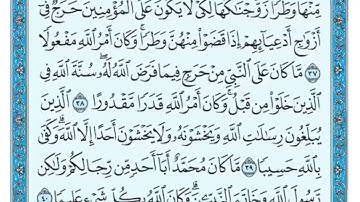 مِنْهَا وَطَرًا زَوَّجْنَٰكَهَا لِكَىْ لَا يَكُونَ عَلَى ٱلْمُؤْمِنِينَ حَرَجٌ فِىٓ
أَزْوَٰجِ أَدْعِيَآئِهِمْ إِذَا قَضَوْا۟ مِنْهُنَّ وَطَرًا ۚ وَكَانَ أَمْرُ ٱللَّهِ مَفْعُولًا
٣٧ مَّا كَانَ عَلَى ٱلنَّبِىِّ مِنْ حَرَجٍ فِيمَا فَرَضَ ٱللَّهُ لَهُۥ ۖ سُنَّةَ ٱللَّهِ فِى
ٱلَّذِينَ خَلَوْا۟ مِن قَبْلُ ۚ وَكَانَ أَمْرُ ٱللَّهِ قَدَرًا مَّقْدُورًا ٣٨ ٱلَّذِينَ
يُبَلِّغُونَ رِسَٰلَٰتِ ٱللَّهِ وَيَخْشَوْنَهُۥ وَلَا يَخْشَوْنَ أَحَدًا إِلَّا ٱللَّهَ ۗ وَكَفَىٰ
بِٱللَّهِ حَسِيبًا ٣٩ مَّا كَانَ مُحَمَّدٌ أَبَآ أَحَدٍ مِّن رِّجَالِكُمْ وَلَٰكِن
رَّسُولَ ٱللَّهِ وَخَاتَمَ ٱلنَّبِيِّۦنَ ۗ وَكَانَ ٱللَّهُ بِكُلِّ شَىْءٍ عَلِيمًا ٤٠